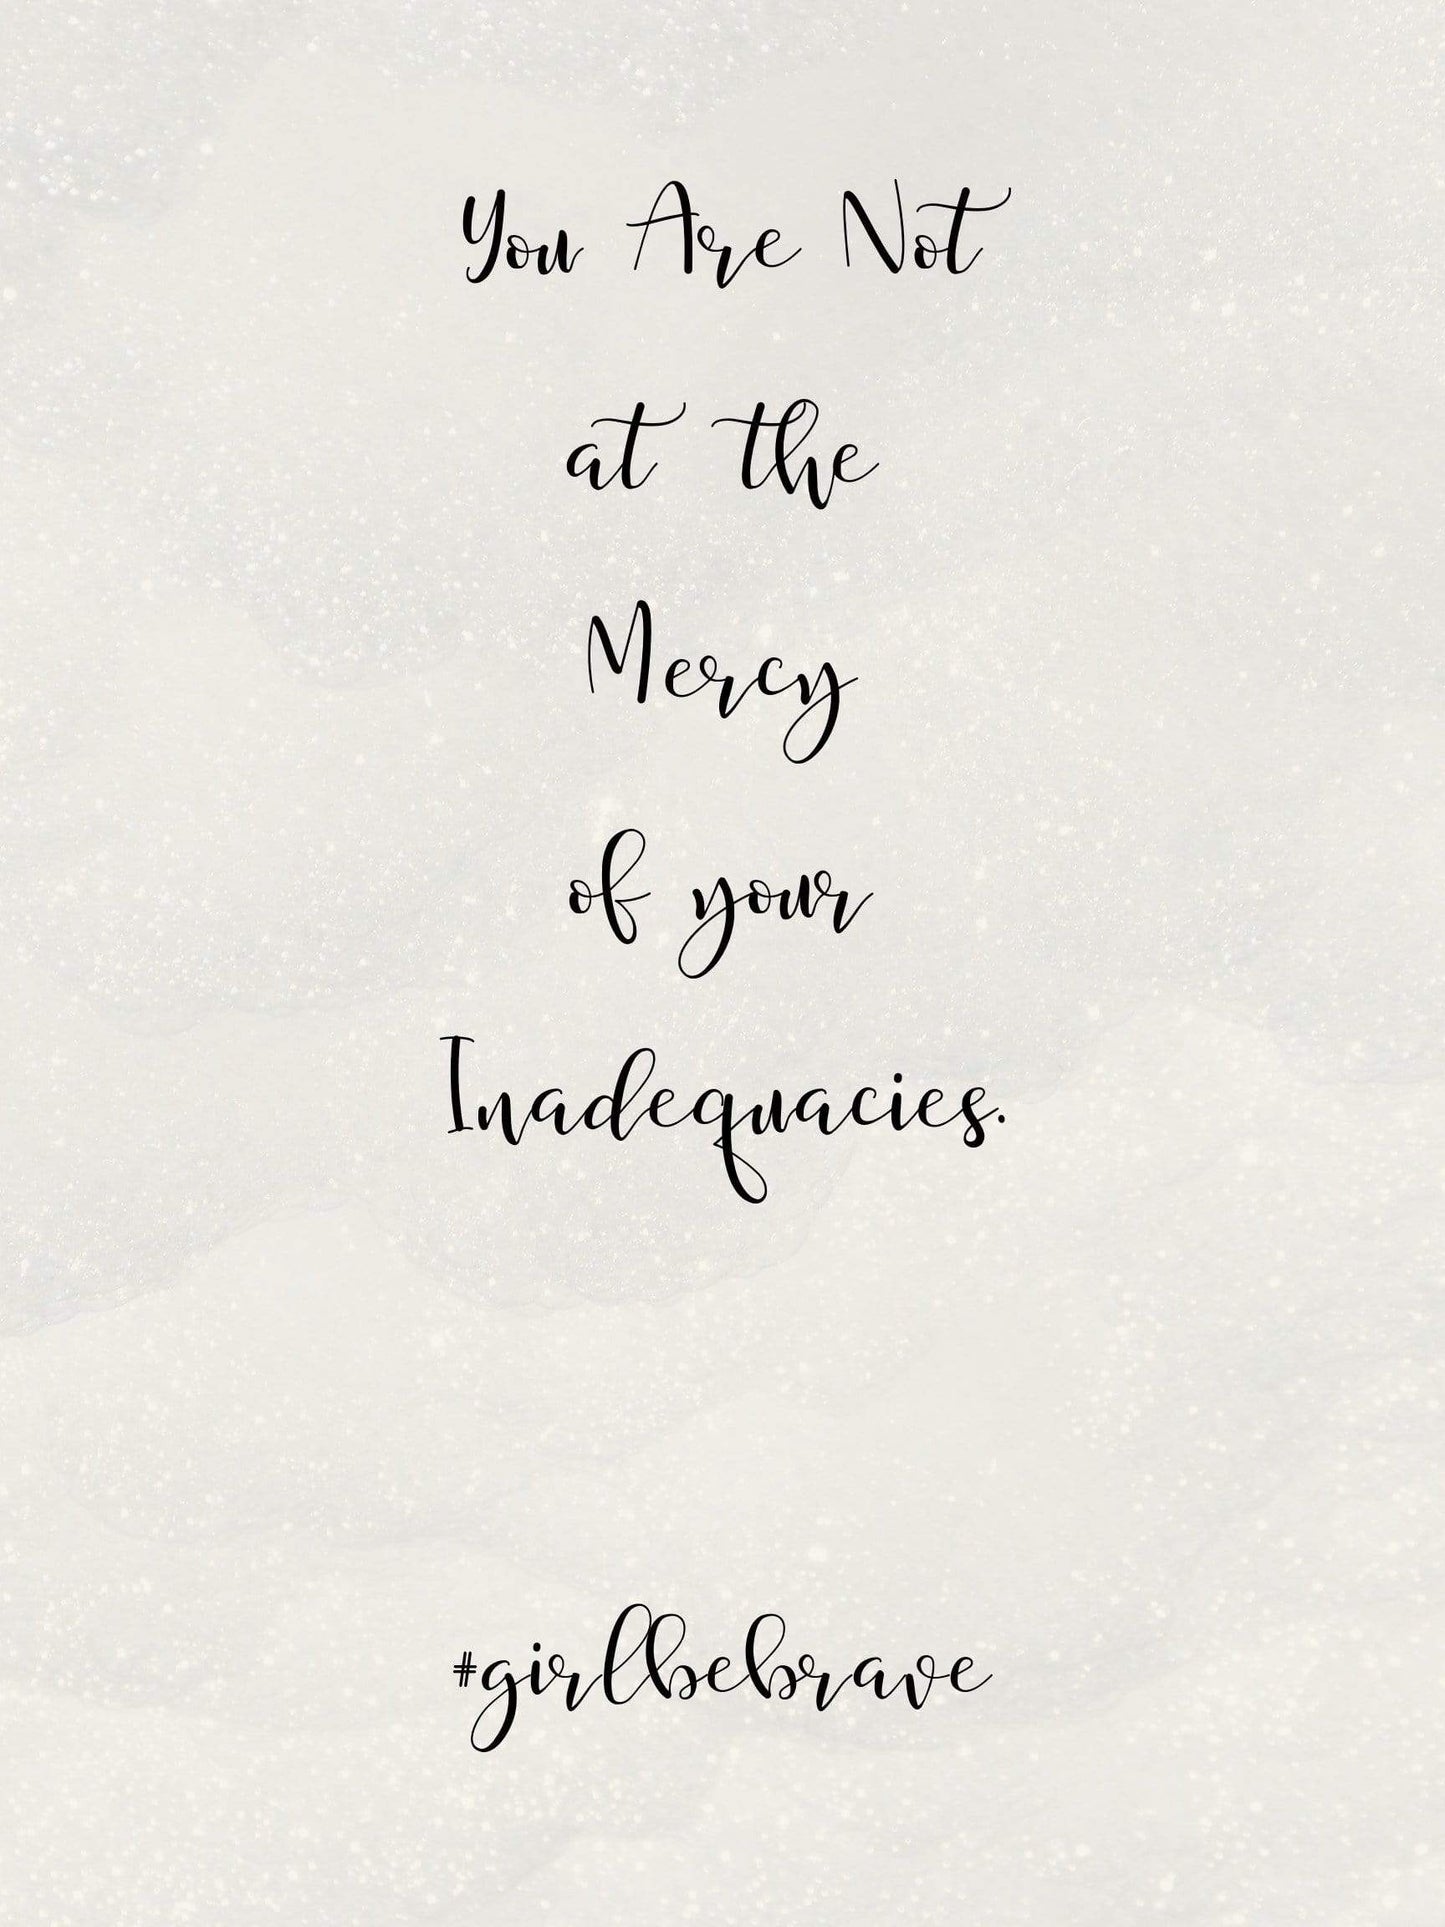 You Are Not
at the
Mercy
of your
Inadequacies.
#girlbebrave